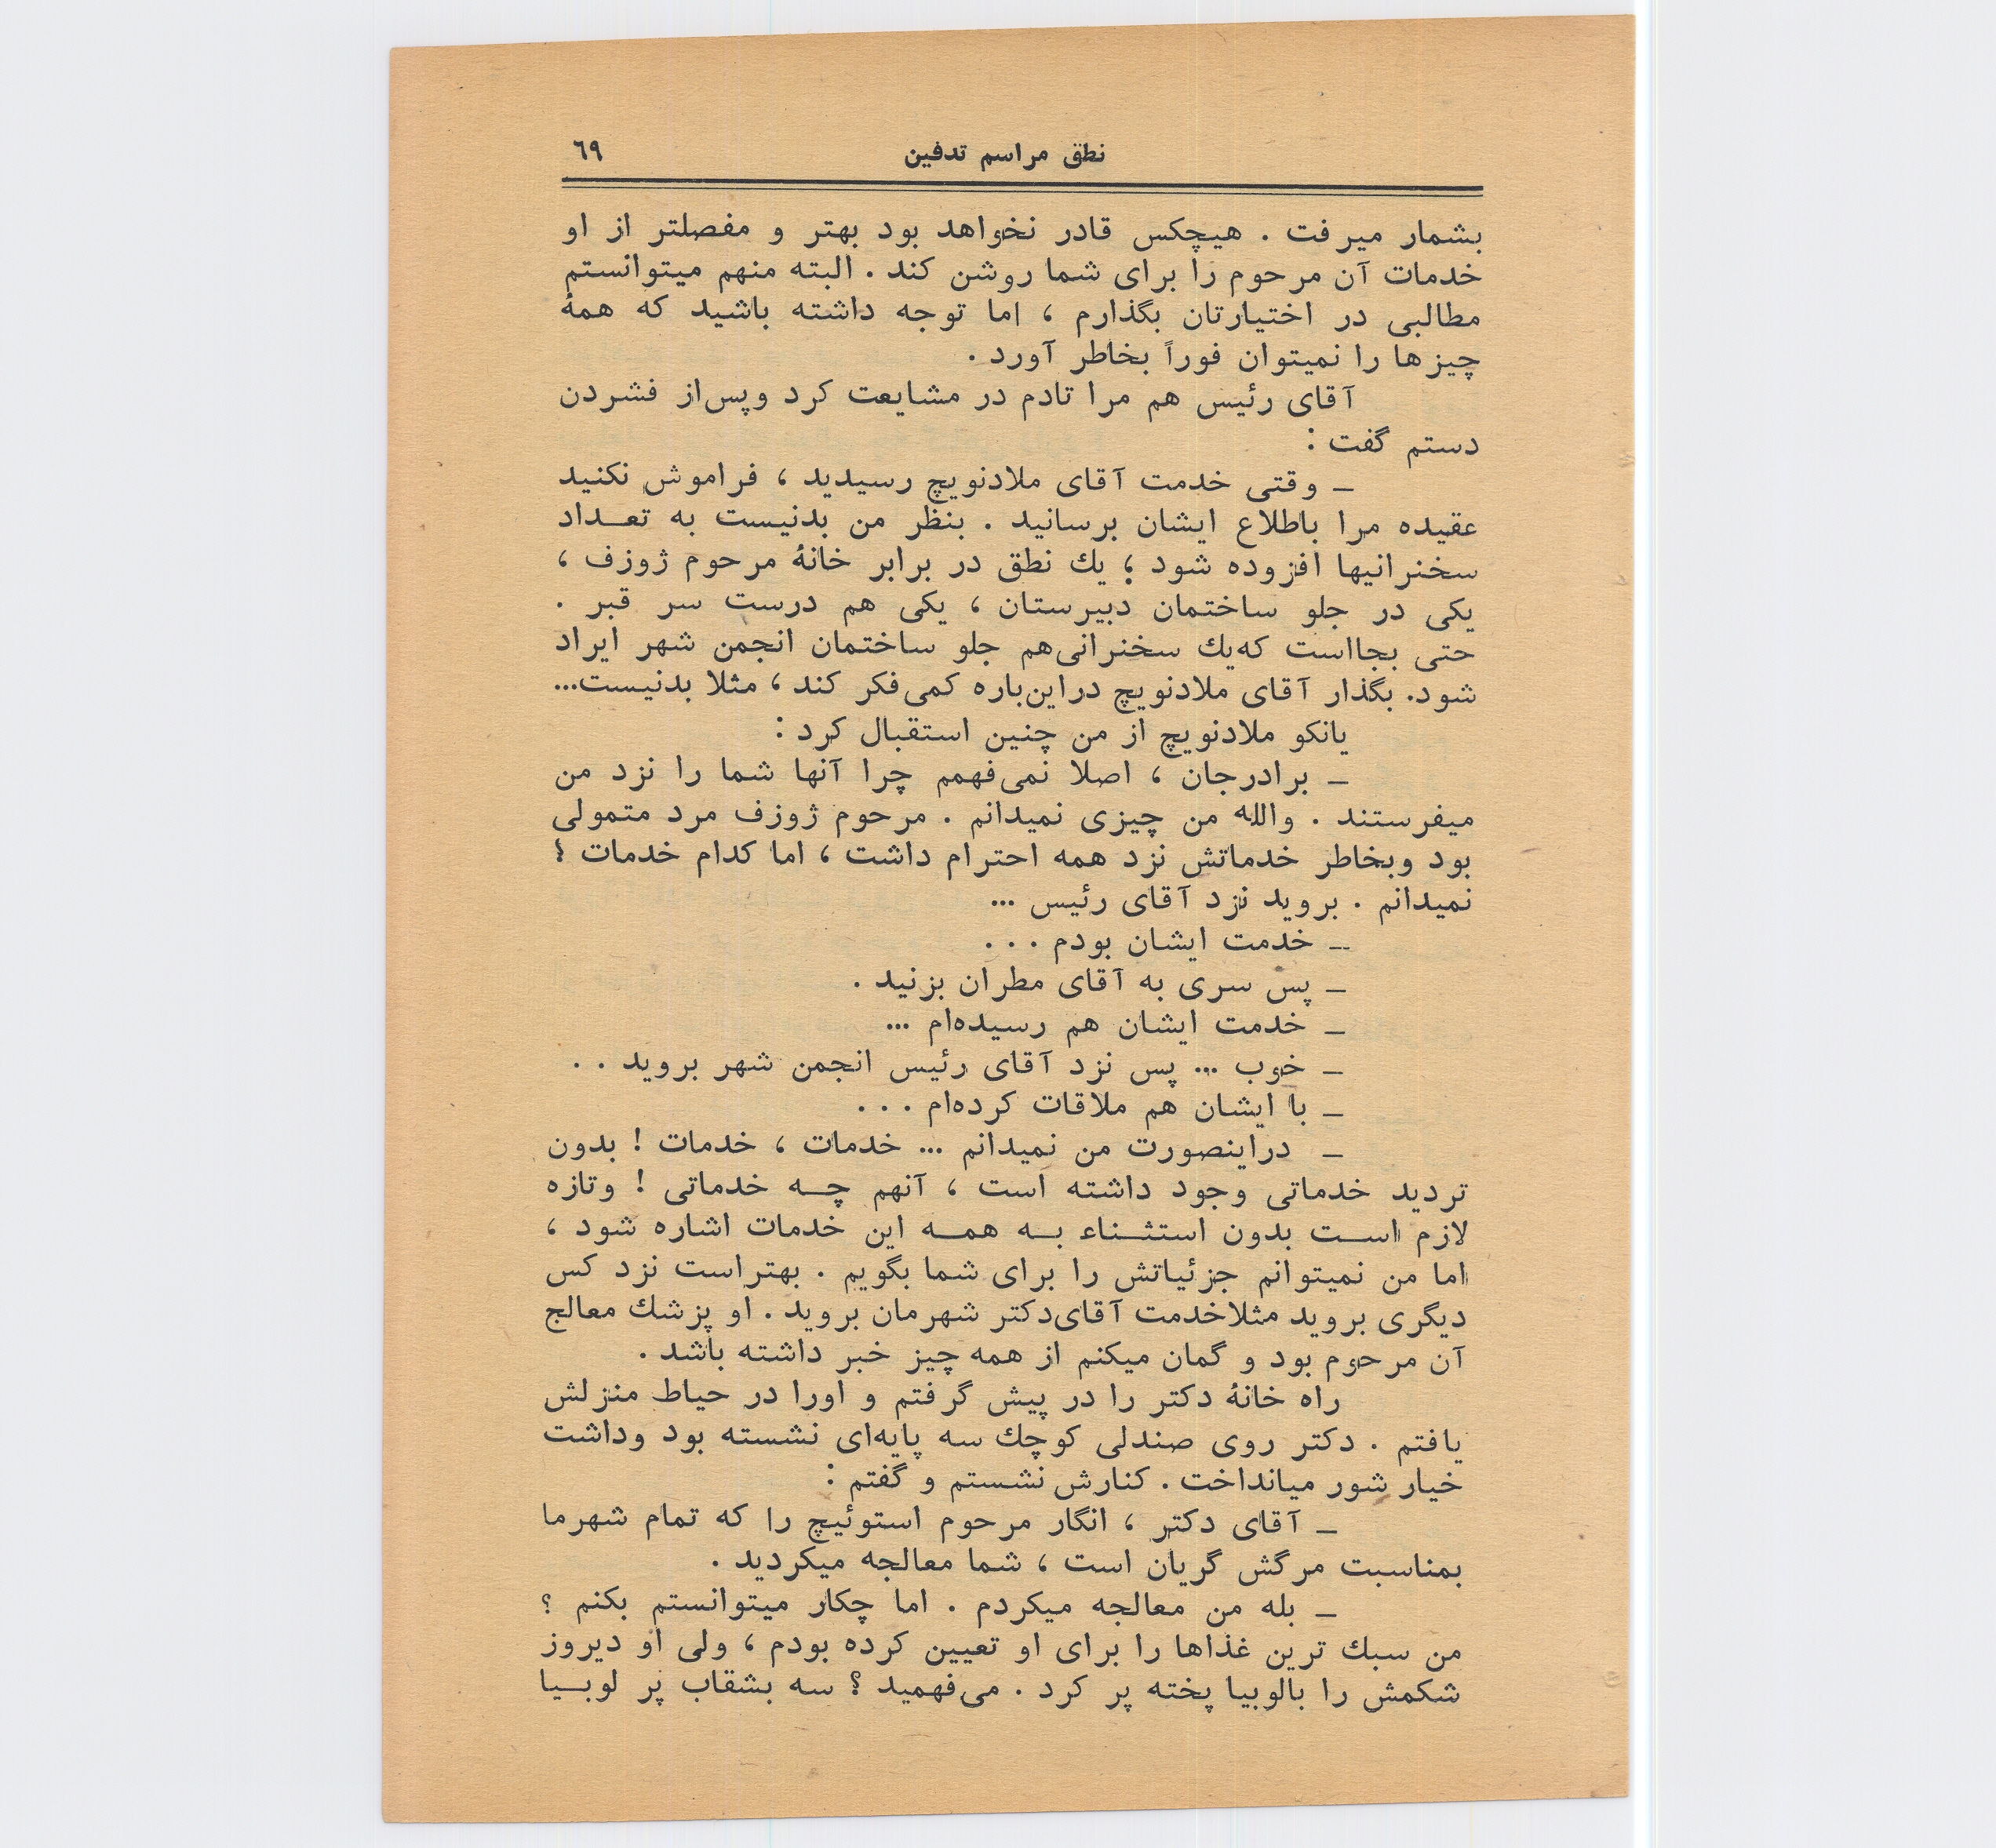 نطق مراسم تدفین
٦٩
بشمار میرفت . هیچکس قادر نخواهد بود بهتر و مفصلتر از او
خدمات آن مرحوم را برای شما روشن کند . البته منهم میتوانستم
مطالبی در اختیارتان بگذارم ، اما توجه داشته باشید که همهٔ
چیزها را نمیتوان فوراً بخاطر آورد .
آقای رئیس هم مرا تادم در مشایعت کرد وپس‌از فشردن
دستم گفت :
ـ وقتی خدمت آقای ملادنویچ رسیدید ، فراموش نکنید
عقیده مرا باطلاع ایشان برسانید . بنظر من بدنیست به تعـداد
سخنرانیها افزوده شود ؛ یك نطق در برابر خانهٔ مرحوم ژوزف ،
یکی در جلو ساختمان دبیرستان ، یکی هم درست سر قبر .
حتی بجااست که‌یك سخنرانی‌هم جلو ساختمان انجمن شهر ایراد
شود. بگذار آقای ملادنویچ دراین‌باره کمی‌فکر کند ، مثلا بدنیست...
یانکو ملادنویچ از من چنین استقبال کرد :
ـ برادرجان ، اصلا نمی‌فهمم چرا آنها شما را نزد من
میفرستند . والله من چیزی نمیدانم . مرحوم ژوزف مرد متمولی
بود وبخاطر خدماتش نزد همه احترام داشت ، اما کدام خدمات ؟
نمیدانم . بروید نزد آقای رئیس ...
ـ خدمت ایشان بودم . . .
ـ پس سری به آقای مطران بزنید .
ـ خدمت ایشان هم رسیده‌ام ...
ـ خوب ... پس نزد آقای رئیس انجمن شهر بروید . .
ـ با ایشان هم ملاقات کرده‌ام . . .
ـ دراینصورت من نمیدانم ... خدمات ، خدمات ! بدون
تردید خدماتی وجود داشته است ، آنهم چـه خدماتی ! وتازه
لازم اسـت بدون استثـناء بـه همـه این خدمات اشاره شود ،
اما من نمیتوانم جزئیاتش را برای شما بگویم . بهتراست نزد کس
دیگری بروید مثلاخدمت آقای‌دکتر شهرمان بروید . او پزشك معالج
آن مرحوم بود و گمان میکنم از همه چیز خبر داشته باشد .
راه خانهٔ دکتر را در پیش گرفتم و اورا در حیاط منزلش
یافتم . دکتر روی صندلی کوچك سه پایه‌ای نشسته بود وداشت
خیار شور میانداخت . کنارش نشستم و گفتم :
ـ آقای دکتر ، انگار مرحوم استوئیچ را که تمام شهرما
بمناسبت مرگش گریان است ، شما معالجه میکردید .
ـ بله من معالجه میکردم . اما چکار میتوانستم بکنم ؟
من سبك ترین غذاها را برای او تعیین کرده بودم ، ولی او دیروز
شکمش را بالوبیا پخته پر کرد . می‌فهمید ؟ سه بشقاب پر لوبـیا